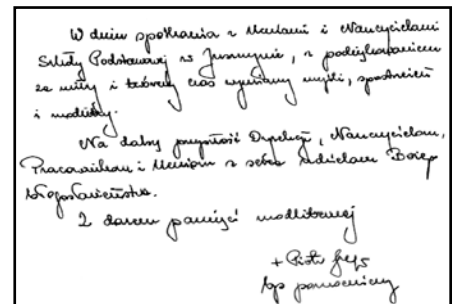 W dniu spotkania z Uczniami i Nauczycielami
Szkoły Podstawowej w, z podziękowaniem
za miły i twórczy czas wymiany myśli, spostrzeżeń
i modlitwy.
Na dalszą przyszłość Dyrekcji, Nauczycielom,
Pracownikom i Uczniom z serca udzielam Bożego
błogosławieństwa.
Z darem pamięci modlitewnej
+ Piotr
bp pomocniczy